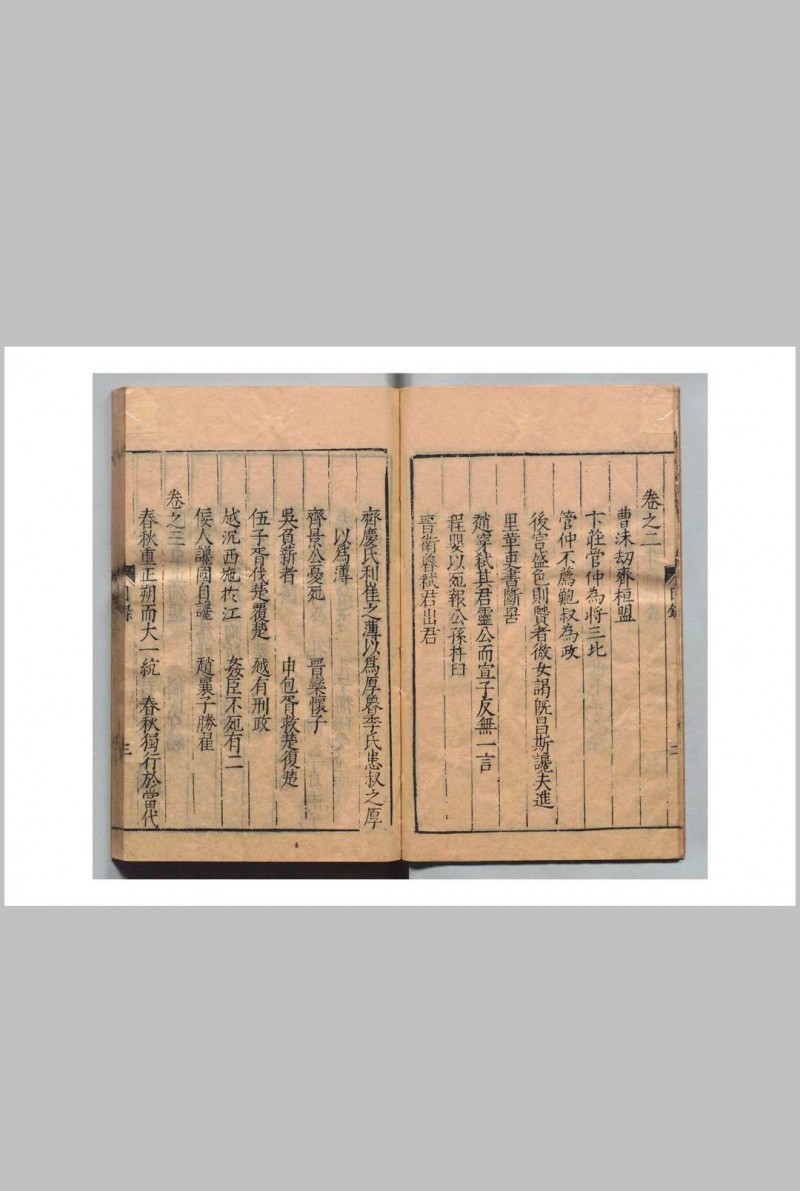 卷之二
曹沬刧齊桓盟
卞莊管仲為將三北
管仲不薦鮑叔為政
後宮盛色則賢者微女謁旣昌斯讒夫進
里革更書斷罟
趙穿弒其君靈公而宣子反無一言
程嬰以死報公孫杵臼
晉衛魯弒君出君
目錄
二
齊慶氏利崔之薄以爲厚魯季氏患叔之厚
以爲薄
齊景公憂死 晉欒懷子
吳負薪者 申包胥救楚復楚
伍子胥伐楚覆楚 越有刑政
越沉西施於江 姦臣不死有二
佞人讒國自讒 趙襄子勝翟
卷之三
春秋重正朔而大一統 春秋獨行於當代
目錄
三